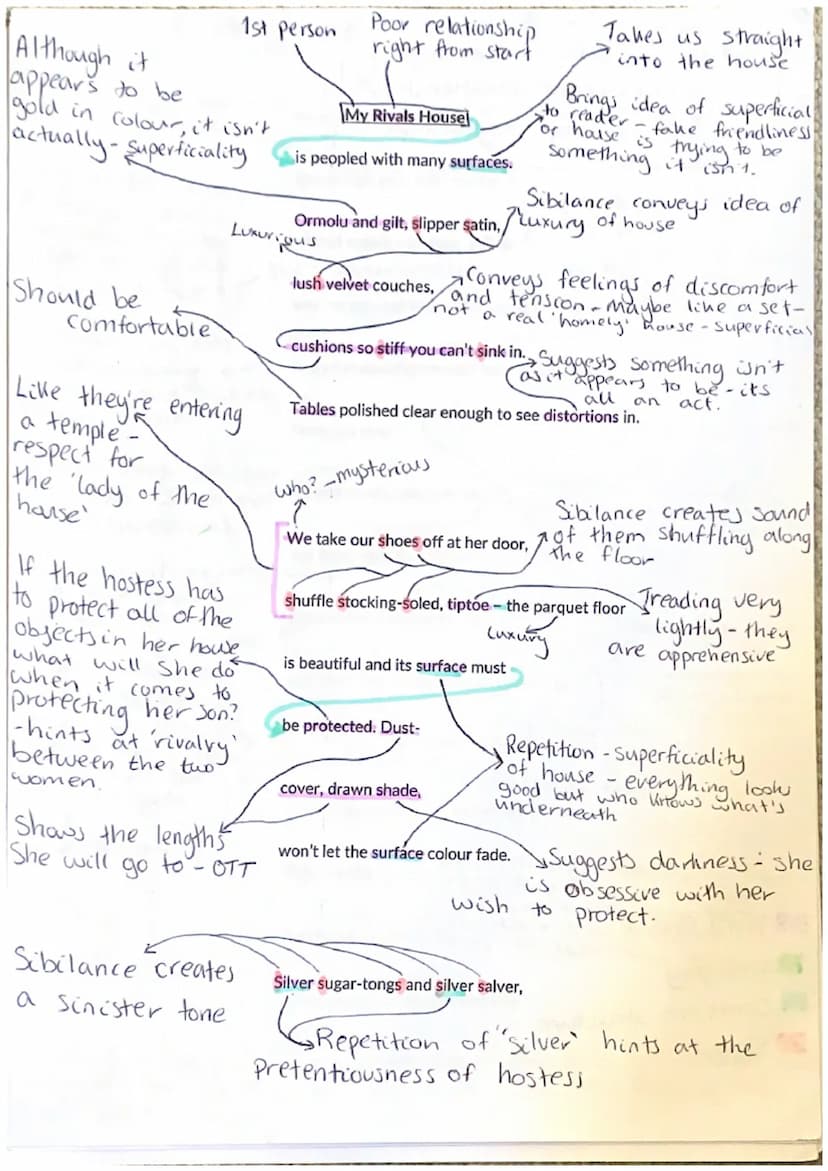 1st person
Poor relationship
right from start
Takes us straight
into the house
Although it
appears to be
gold in colour, it isn't
actually - superficiality
My Rivals House
Brings idea of superficial
to reader - fake friendliness
or house is trying to be
something it isn't.
is peopled with many surfaces.
Sibilance conveys idea of
luxury of house
Ormolu and gilt, slipper satin,
Luxurious
lush velvet couches,
Conveys feelings of discomfort
and tension - Maybe like a set-
not a real 'homely' house - superficial
Should be
comfortable
cushions so stiff you can't sink in.
Suggests something isn't
as it appears to be - its
all an act.
Tables polished clear enough to see distortions in.
Like they're entering
a temple -
respect for
the 'lady of the
house'
who? - mysterious
We take our shoes off at her door,
Sibilance creates sound
of them shuffling along
the floor
shuffle stocking-soled, tiptoe – the parquet floor
Treading very
lightly - they
are apprehensive
luxury
If the hostess has
to protect all of the
objects in her house
what will she do
when it comes to
protecting her son?
-hints at 'rivalry'
between the two
women.
is beautiful and its surface must
be protected. Dust-
Repetition - superficiality
of house - everything looks
good but who knows what's
underneath
cover, drawn shade,
Shows the lengths
She will go to - OTT
won't let the surface colour fade.
Suggests darkness - she
is obsessive with her
wish to protect.
Sibilance creates
a sinister tone
Silver sugar-tongs and silver salver,
Repetition of "silver" hints at the
pretentiousness of hostess